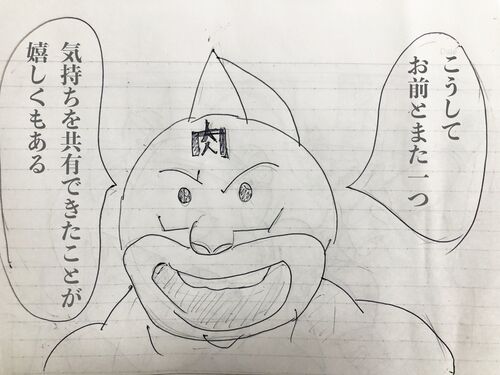 こうして
お前とまた一つ
気持ちを共有できたことが
嬉しくもある
肉